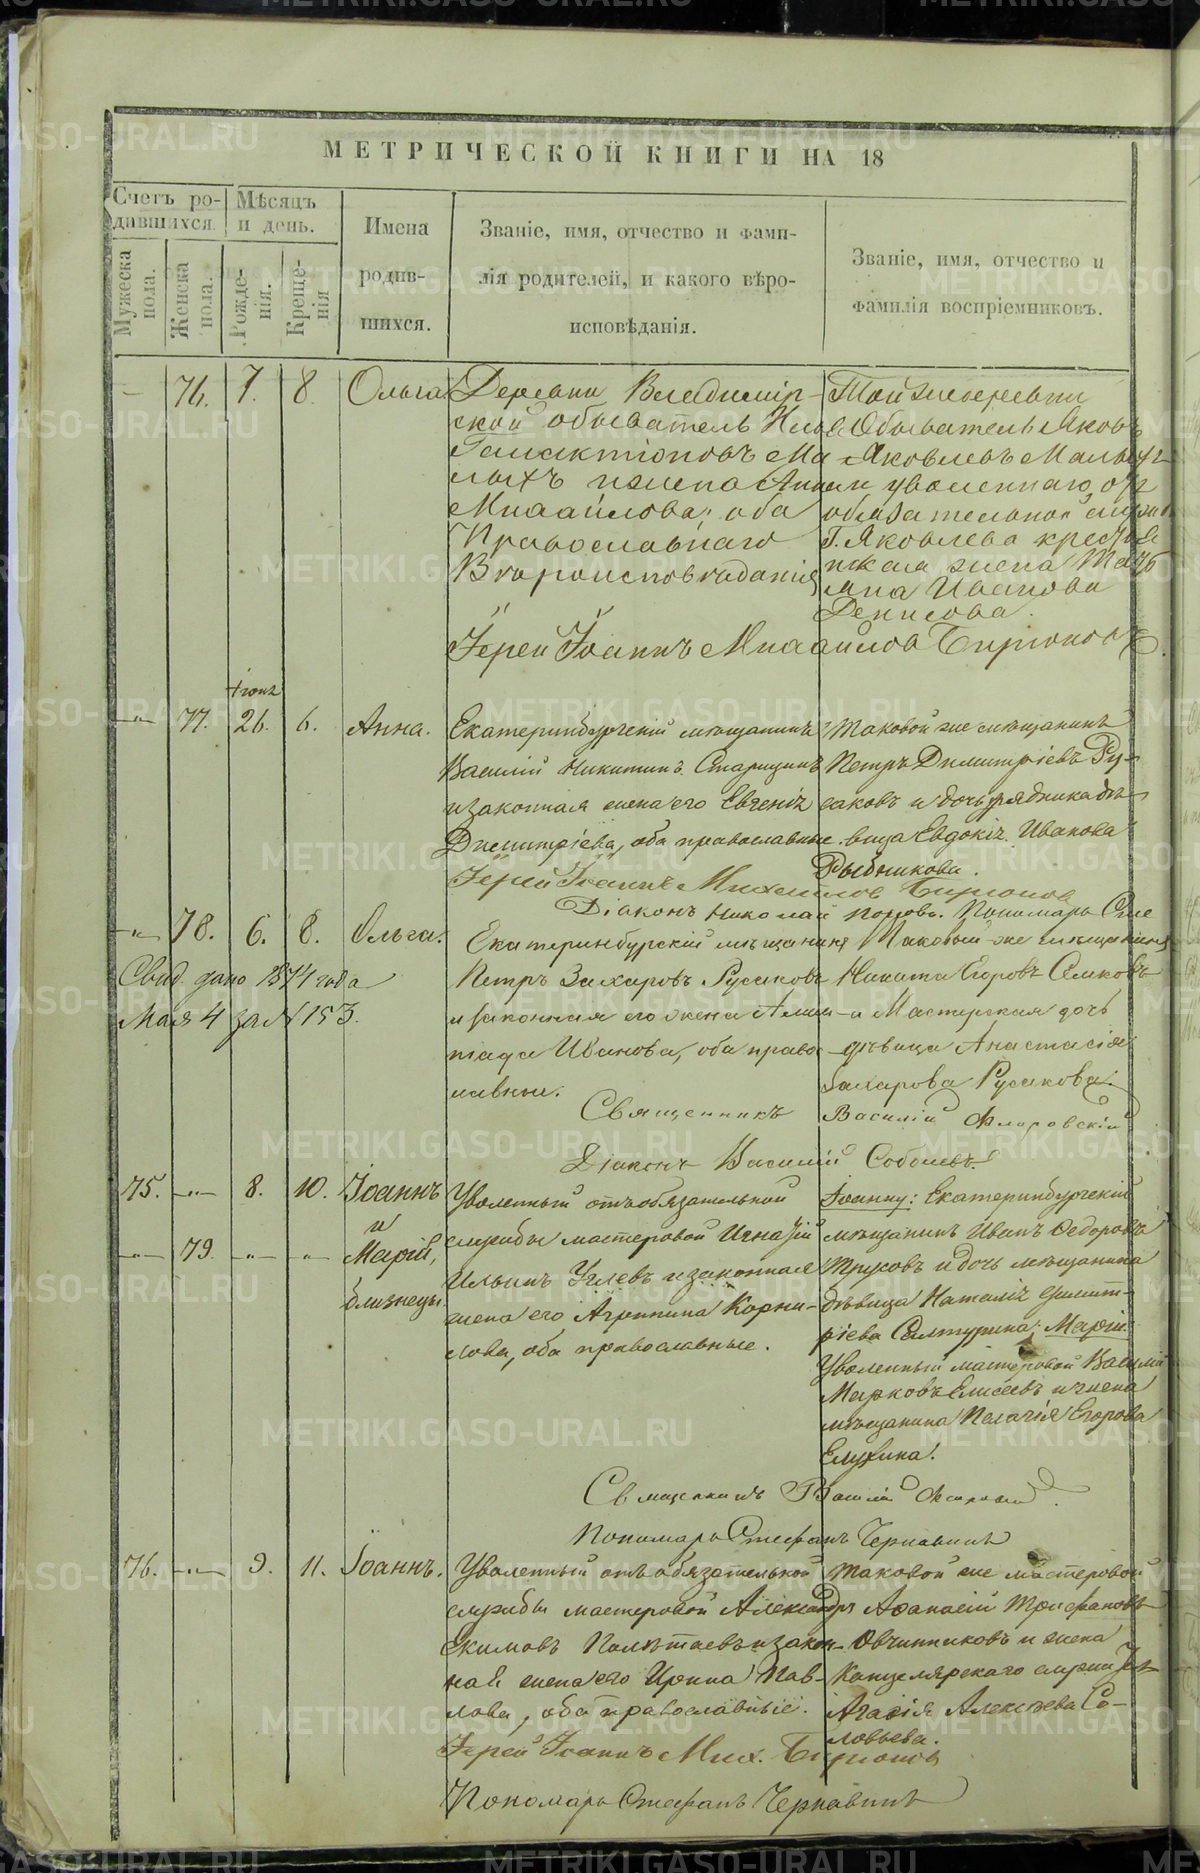 МЕТРИЧЕСКОЙ КНИГИ НА 18
Счетъ ро-
дившихся.
Мѣсяцъ
и день.
Мужеска пола.
Женска пола.
Рожде-
нія.
Креще-
нія
Имена
родив-
шихся.
Званіе, имя, отчество и фами-
лія родителей, и какого вѣро-
исповѣданія.
Званіе, имя, отчество и
фамилія воспріемниковъ.
— 76. 7. 8. Ольга
Деревни Владимір-
ской обыватель
Галактіоновъ Ма-
лыхъ и жена Анна
Михайлова, оба
Православнаго
Вѣроисповѣданія
Той же деревни
Обыватель Яковъ
Яковлевъ Малыхъ
и уволеннаго от
обязательной службы
Г. Яковлева
жена
Ивановна
Денисова.
Іерей Іоаннъ Михайловъ Бирюковъ.
іюня
—"— 77. 26. 6. Анна.
Екатеринбургскій мѣщанинъ
Василій Никитинъ Старицынъ
и законная жена его Евгенія
Димитріева, оба православные.
Таковой же мѣщанинъ
Петръ Димитріевъ Ру-
саковъ и дочь урядника дѣ-
вица Евдокія Иванова
Рыбникова.
Іерей Іоаннъ Михайловъ Бирюковъ
Діаконъ Николай Поповъ. Пономарь Сте
—"— 78. 6. 8. Ольга.
Свид. дано 1874 года
Мая 4 за N 153.
Екатеринбурскій мѣщанинъ
Петръ Захаровъ Русаковъ
и законная его жена Алим-
піада Иванова, оба правос-
лавные.
Таковый-же мѣщанинъ
Никита Егоровъ Семковъ
и Мастерская дочь
дѣвица Анастасія
Захарова Русакова.
Священникъ Василій Флоровскій
Діаконъ Василій Соболевъ.
75. —"— 8. 10. Іоаннъ
и
—"— 79. —"— —"— Марія,
близнецы.
Уволенный отъ обязательной
службы мастеровой Игнатій
Ильинъ Углевъ и законная
жена его Агриппина Корни-
лова, оба православные.
Іоанну: Екатеринбургскій
мѣщанинъ Иванъ Ѳедоровъ
Трусовъ и дочь мѣщанина
дѣвица Наталія Димит-
ріева Салтурина; Маріи:
Уволенный мастеровой Василій
Марковъ Елисеевъ и жена
мѣщанина Пелагія Егорова
Елухина.
Священникъ Василій Флоровскій.
Пономарь Стефанъ Чернавинъ
76. —"— 9. 11. Іоаннъ.
Уволенный отъ обязательной
службы мастеровой Александръ
Екимовъ Полѣтаевъ и закон-
ная жена его Ирина Пав-
лова, оба православные.
Таковой же мастеровой
Аѳанасій Трифановъ
Овчинниковъ и жена
Канцелярскаго служителя
Агафія Алексѣева Со-
ловьева.
Іерей Іоаннъ Мих. Бирюковъ
Пономарь Стефанъ Чернавинъ
METRIKI.GASO-URAL.RU